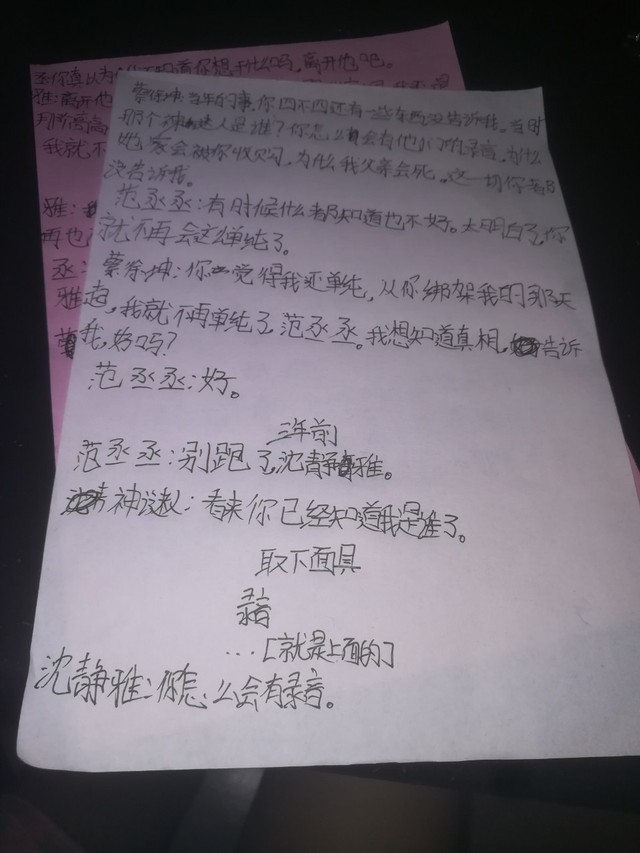 丞你真以为
想干什么吗，离开他吧。
雅：离开他
我就不
雅：
再也
丞：
雅
蔡徐坤：当年的事，你四不四还有一些东西没告诉我。当时
那个神迷人是谁？你怎么会有他们的录音，为什么
她家会被你收购，为什么我父亲会死。这一切你都
没告诉我。
范丞丞：有时候什么都知道也不好。太明白了，你
就不再会这么单纯了。
蔡徐坤：你觉得我还单纯，从你绑架我的那天
起，我就不再单纯了，范丞丞。我想知道真相，告诉
我，好吗？
范丞丞：好。
三年前
范丞丞：别跑了，沈静雅。
神谜人：看来你已经知道我是谁了。
取下面具
录音
…[就是上面的]
沈静雅：你怎么会有录音。